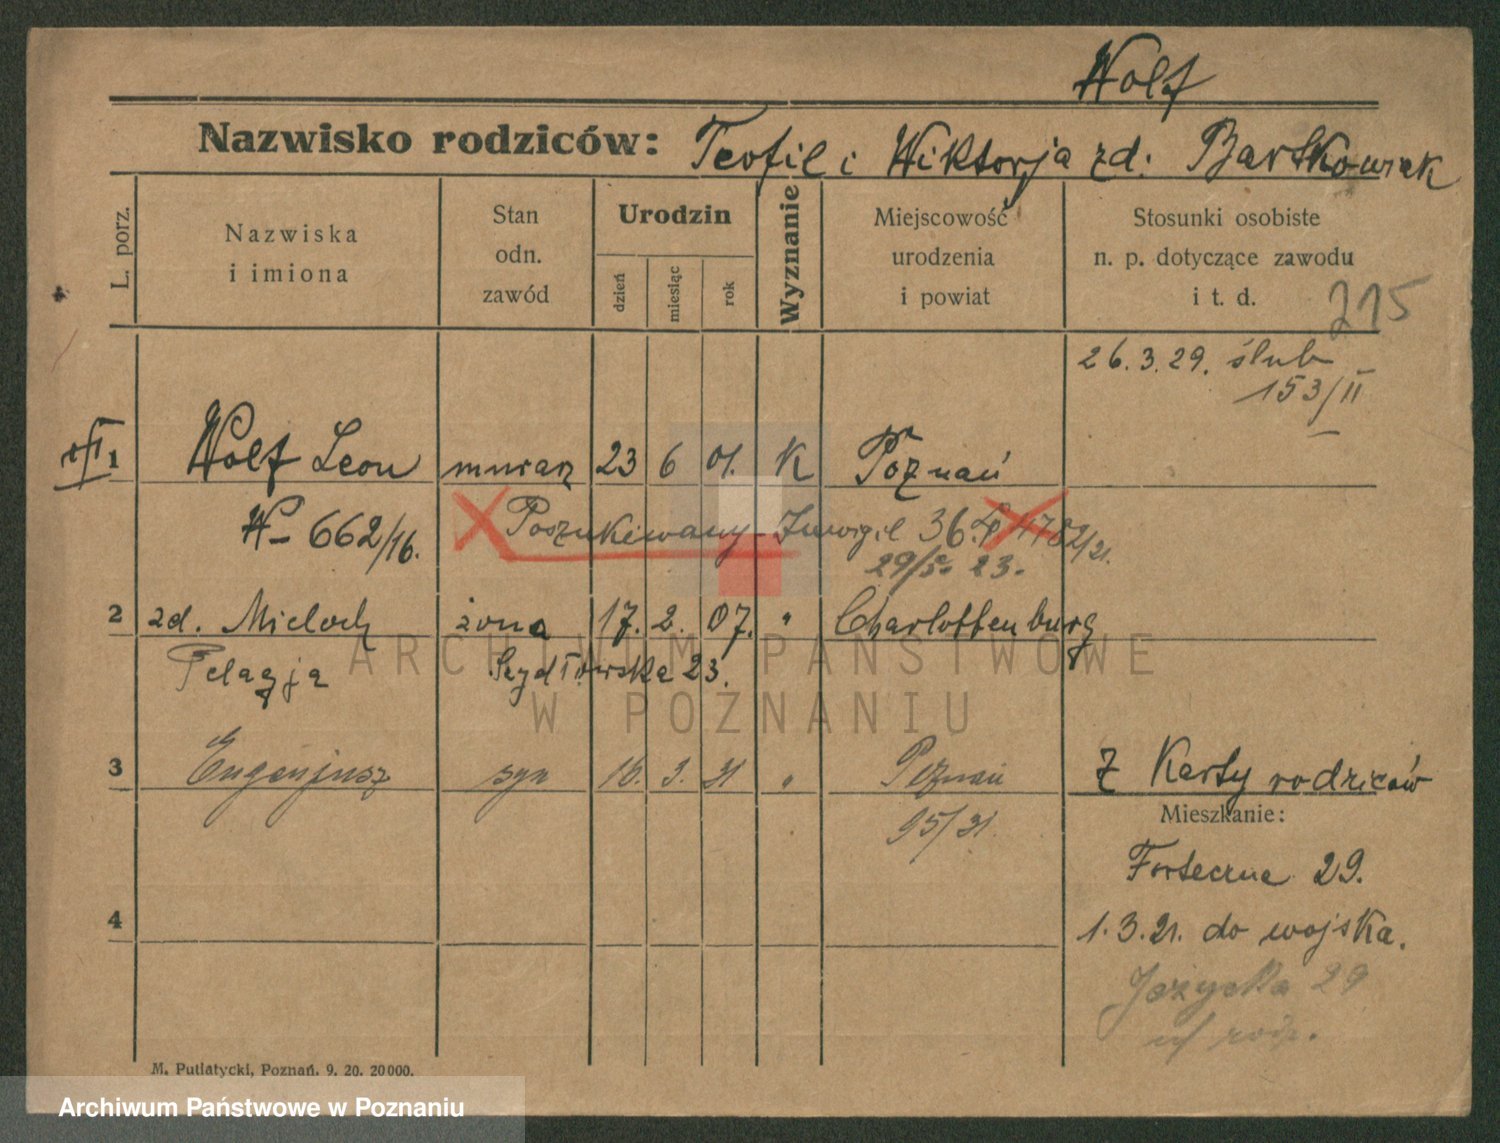 Wolf
Nazwisko rodziców: Teofil i Wiktorja zd. Bartkowiak
L. porz.
Nazwiska
i imiona
Stan
odn.
zawód
Urodzin
dzień
miesiąc
rok
Wyznanie
Miejscowość
urodzenia
i powiat
Stosunki osobiste
n. p. dotyczące zawodu
i t. d.
215
26.3.29. ślub
153/II
1 Wolf Leon murarz 23 6 01. K Poznań
W- 662/16.
Poszukiwany 36.
29/5. 23.
2 zd. Mieloch żona 17. 2. 07. " Charlottenburg
Pelagja Szydłowska 23.
3 Eugenjusz syn 16. 3. 31 " Poznań
95/31
Z Karty rodziców
Mieszkanie:
Forteczna 29.
1.3.21. do wojska.
Jeżycka 29
u/ rodz.
4
M. Putiatycki, Poznań. 9. 20. 20000.
ARCHIWUM PAŃSTWOWE
W POZNANIU
Archiwum Państwowe w Poznaniu